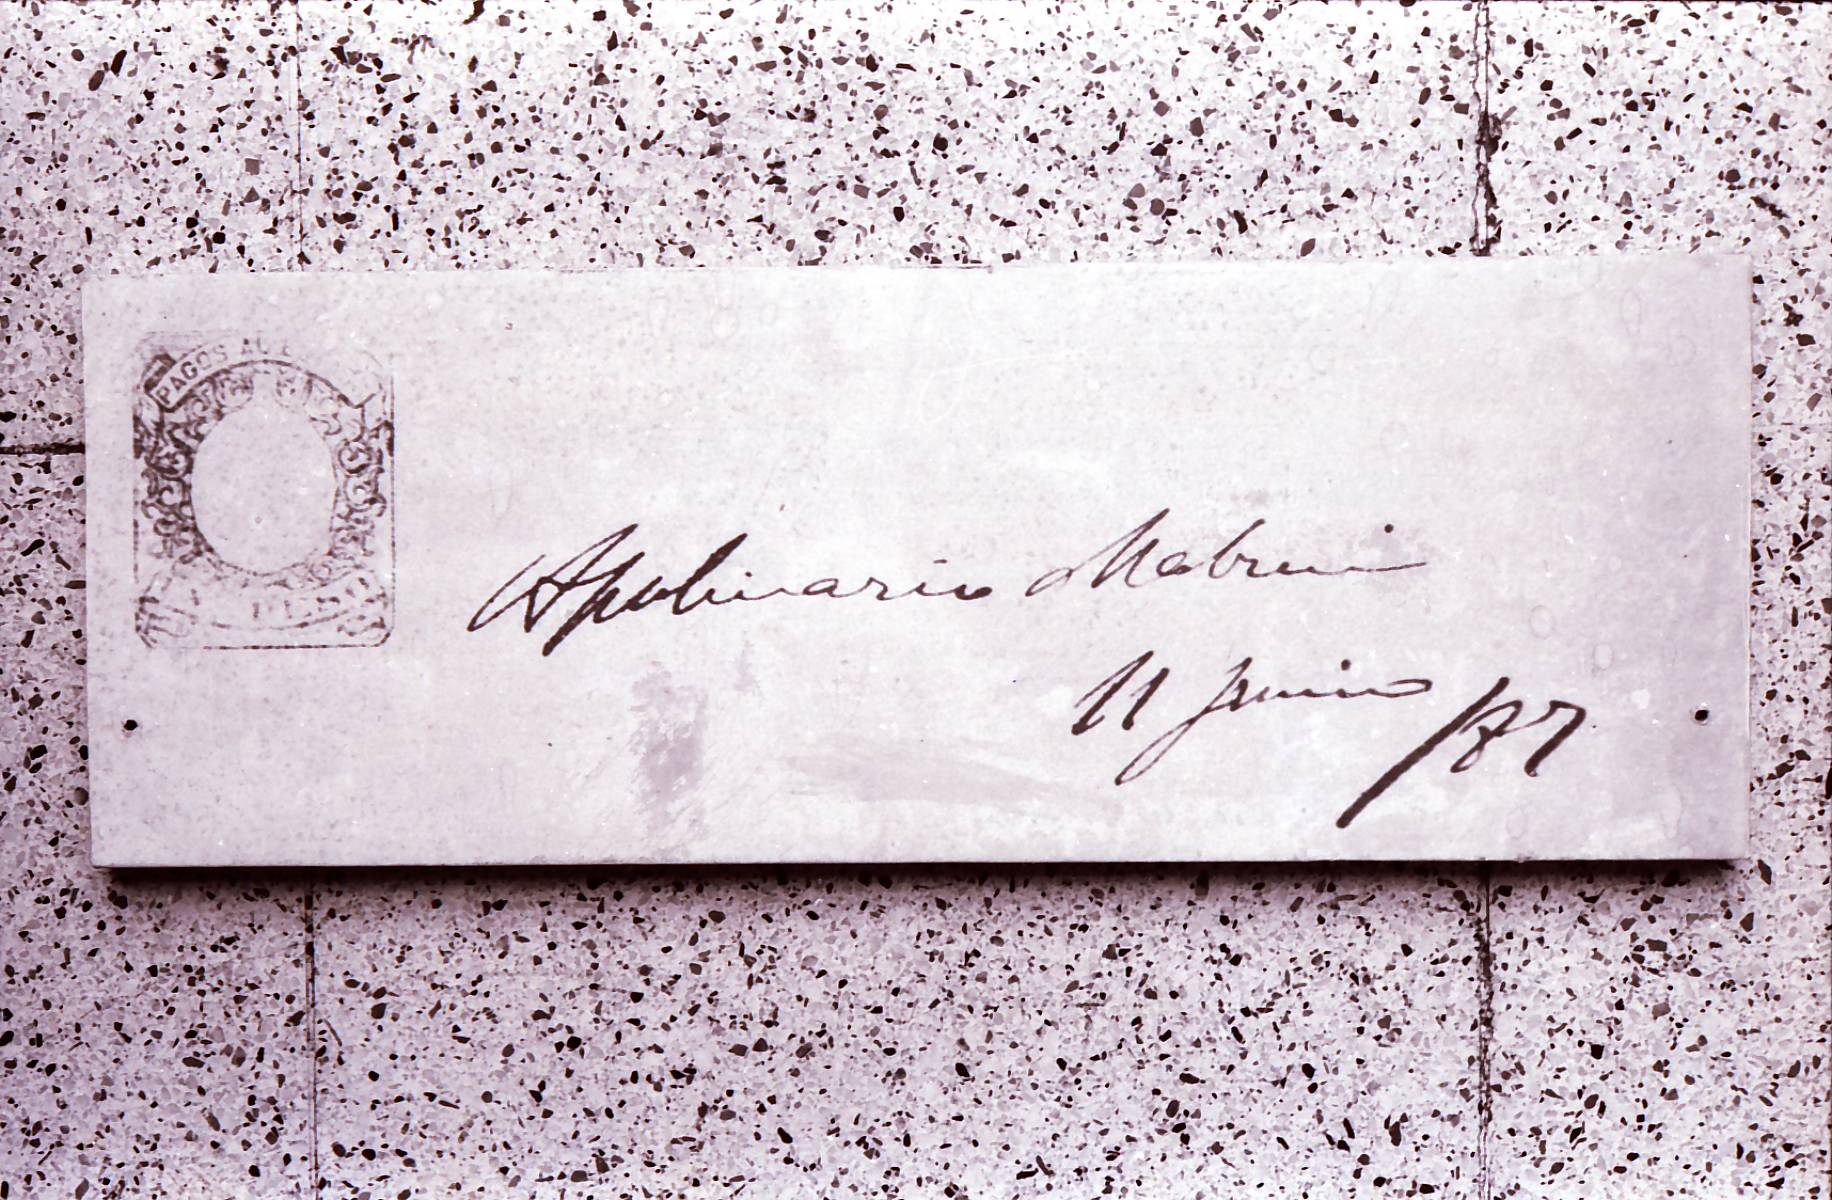 PAGOS AL E
UN PESO
Apolinario Mabini
11 Junio /87